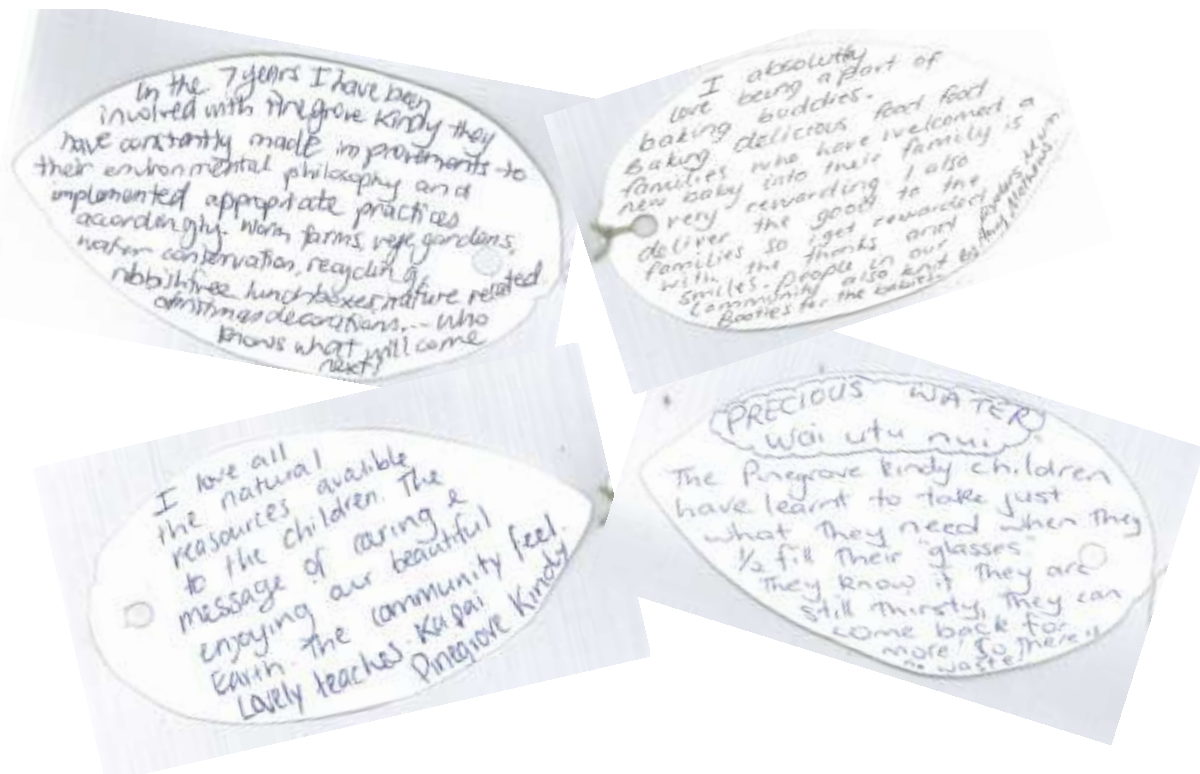 In the 7 years I have been
involved with Pinegrove Kindy they
have constantly made improvements to
their environmental philosophy and
implemented appropriate practices
accordingly. Worm farms, vege gardens,
water conservation, recycling,
rubbishfree lunchboxes, nature related
christmas decorations.... who
knows what will come
next!
I absolutely
love being a part of
baking buddies.
Baking delicious food food
families who have welcomed a
new baby into their family is
very rewarding. I also
deliver the good to the
families so I get rewarded
with the thanks and
smiles. People in our
community also knit
Booties for the babies
I love all
the natural
reasources avalible
to the children. The
message of caring &
enjoying our beautiful
Earth. The community feel.
Lovely teachers. Ka pai
Pinegrove Kindy
PRECIOUS WATER
wai utu nui
The Pinegrove kindy children
have learnt to take just
what they need when they
1/2 fill their "glasses"
They know if they are
still thirsty, they can
come back for
more. So there is
no waste